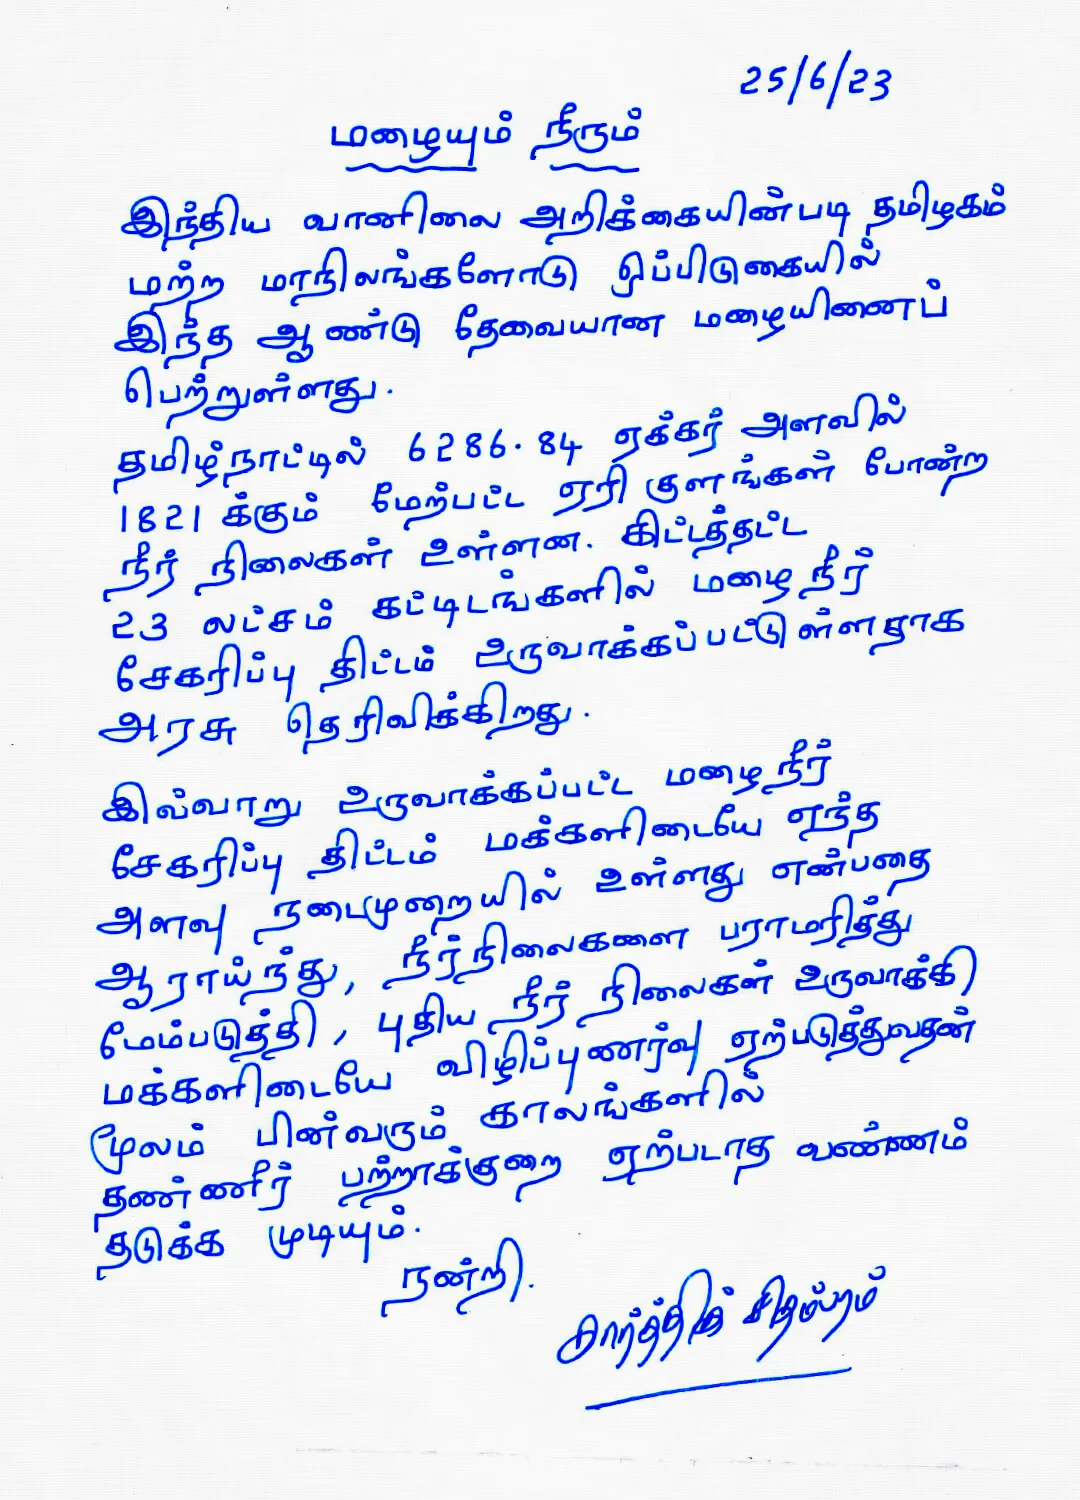 25/6/23
மழையும் நீரும்
இந்திய வானிலை அறிக்கையின்படி தமிழகம்
மற்ற மாநிலங்களோடு ஒப்பிடுகையில்
இந்த ஆண்டு தேவையான மழையினைப்
பெற்றுள்ளது.
தமிழ்நாட்டில் 6286.84 ஏக்கர் அளவில்
1821 க்கும் மேற்பட்ட ஏரி குளங்கள் போன்ற
நீர் நிலைகள் உள்ளன. கிட்டத்தட்ட
23 லட்சம் கட்டிடங்களில் மழை நீர்
சேகரிப்பு திட்டம் உருவாக்கப்பட்டுள்ளதாக
அரசு தெரிவிக்கிறது.
இவ்வாறு உருவாக்கப்பட்ட மழை நீர்
சேகரிப்பு திட்டம் மக்களிடையே எந்த
அளவு நடைமுறையில் உள்ளது என்பதை
ஆராய்ந்து, நீர்நிலைகளை பராமரித்து
மேம்படுத்தி, புதிய நீர் நிலைகள் உருவாக்கி
மக்களிடையே விழிப்புணர்வு ஏற்படுத்துவதன்
மூலம் பின்வரும் காலங்களில்
தண்ணீர் பற்றாக்குறை ஏற்படாத வண்ணம்
தடுக்க முடியும்.
நன்றி.
கார்த்திக் சிதம்பரம்